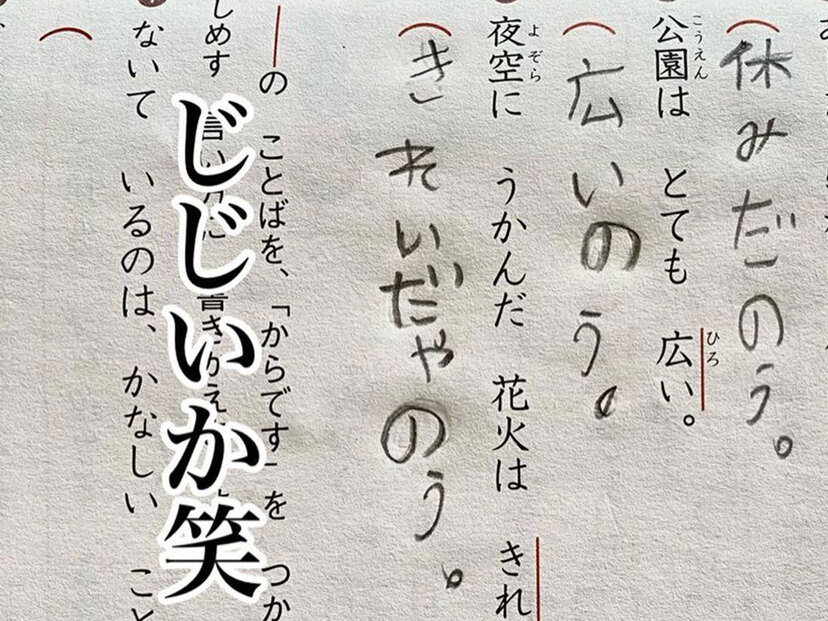 休みだのう。
公園は とても 広い。
こうえん
ひろ
広いのう。
夜空に うかんだ 花火は きれ
よぞら
きれいだゃのう。
の ことばを、「からです」を つか
しめす
ないて いるのは、かなしい こと
じじいか笑